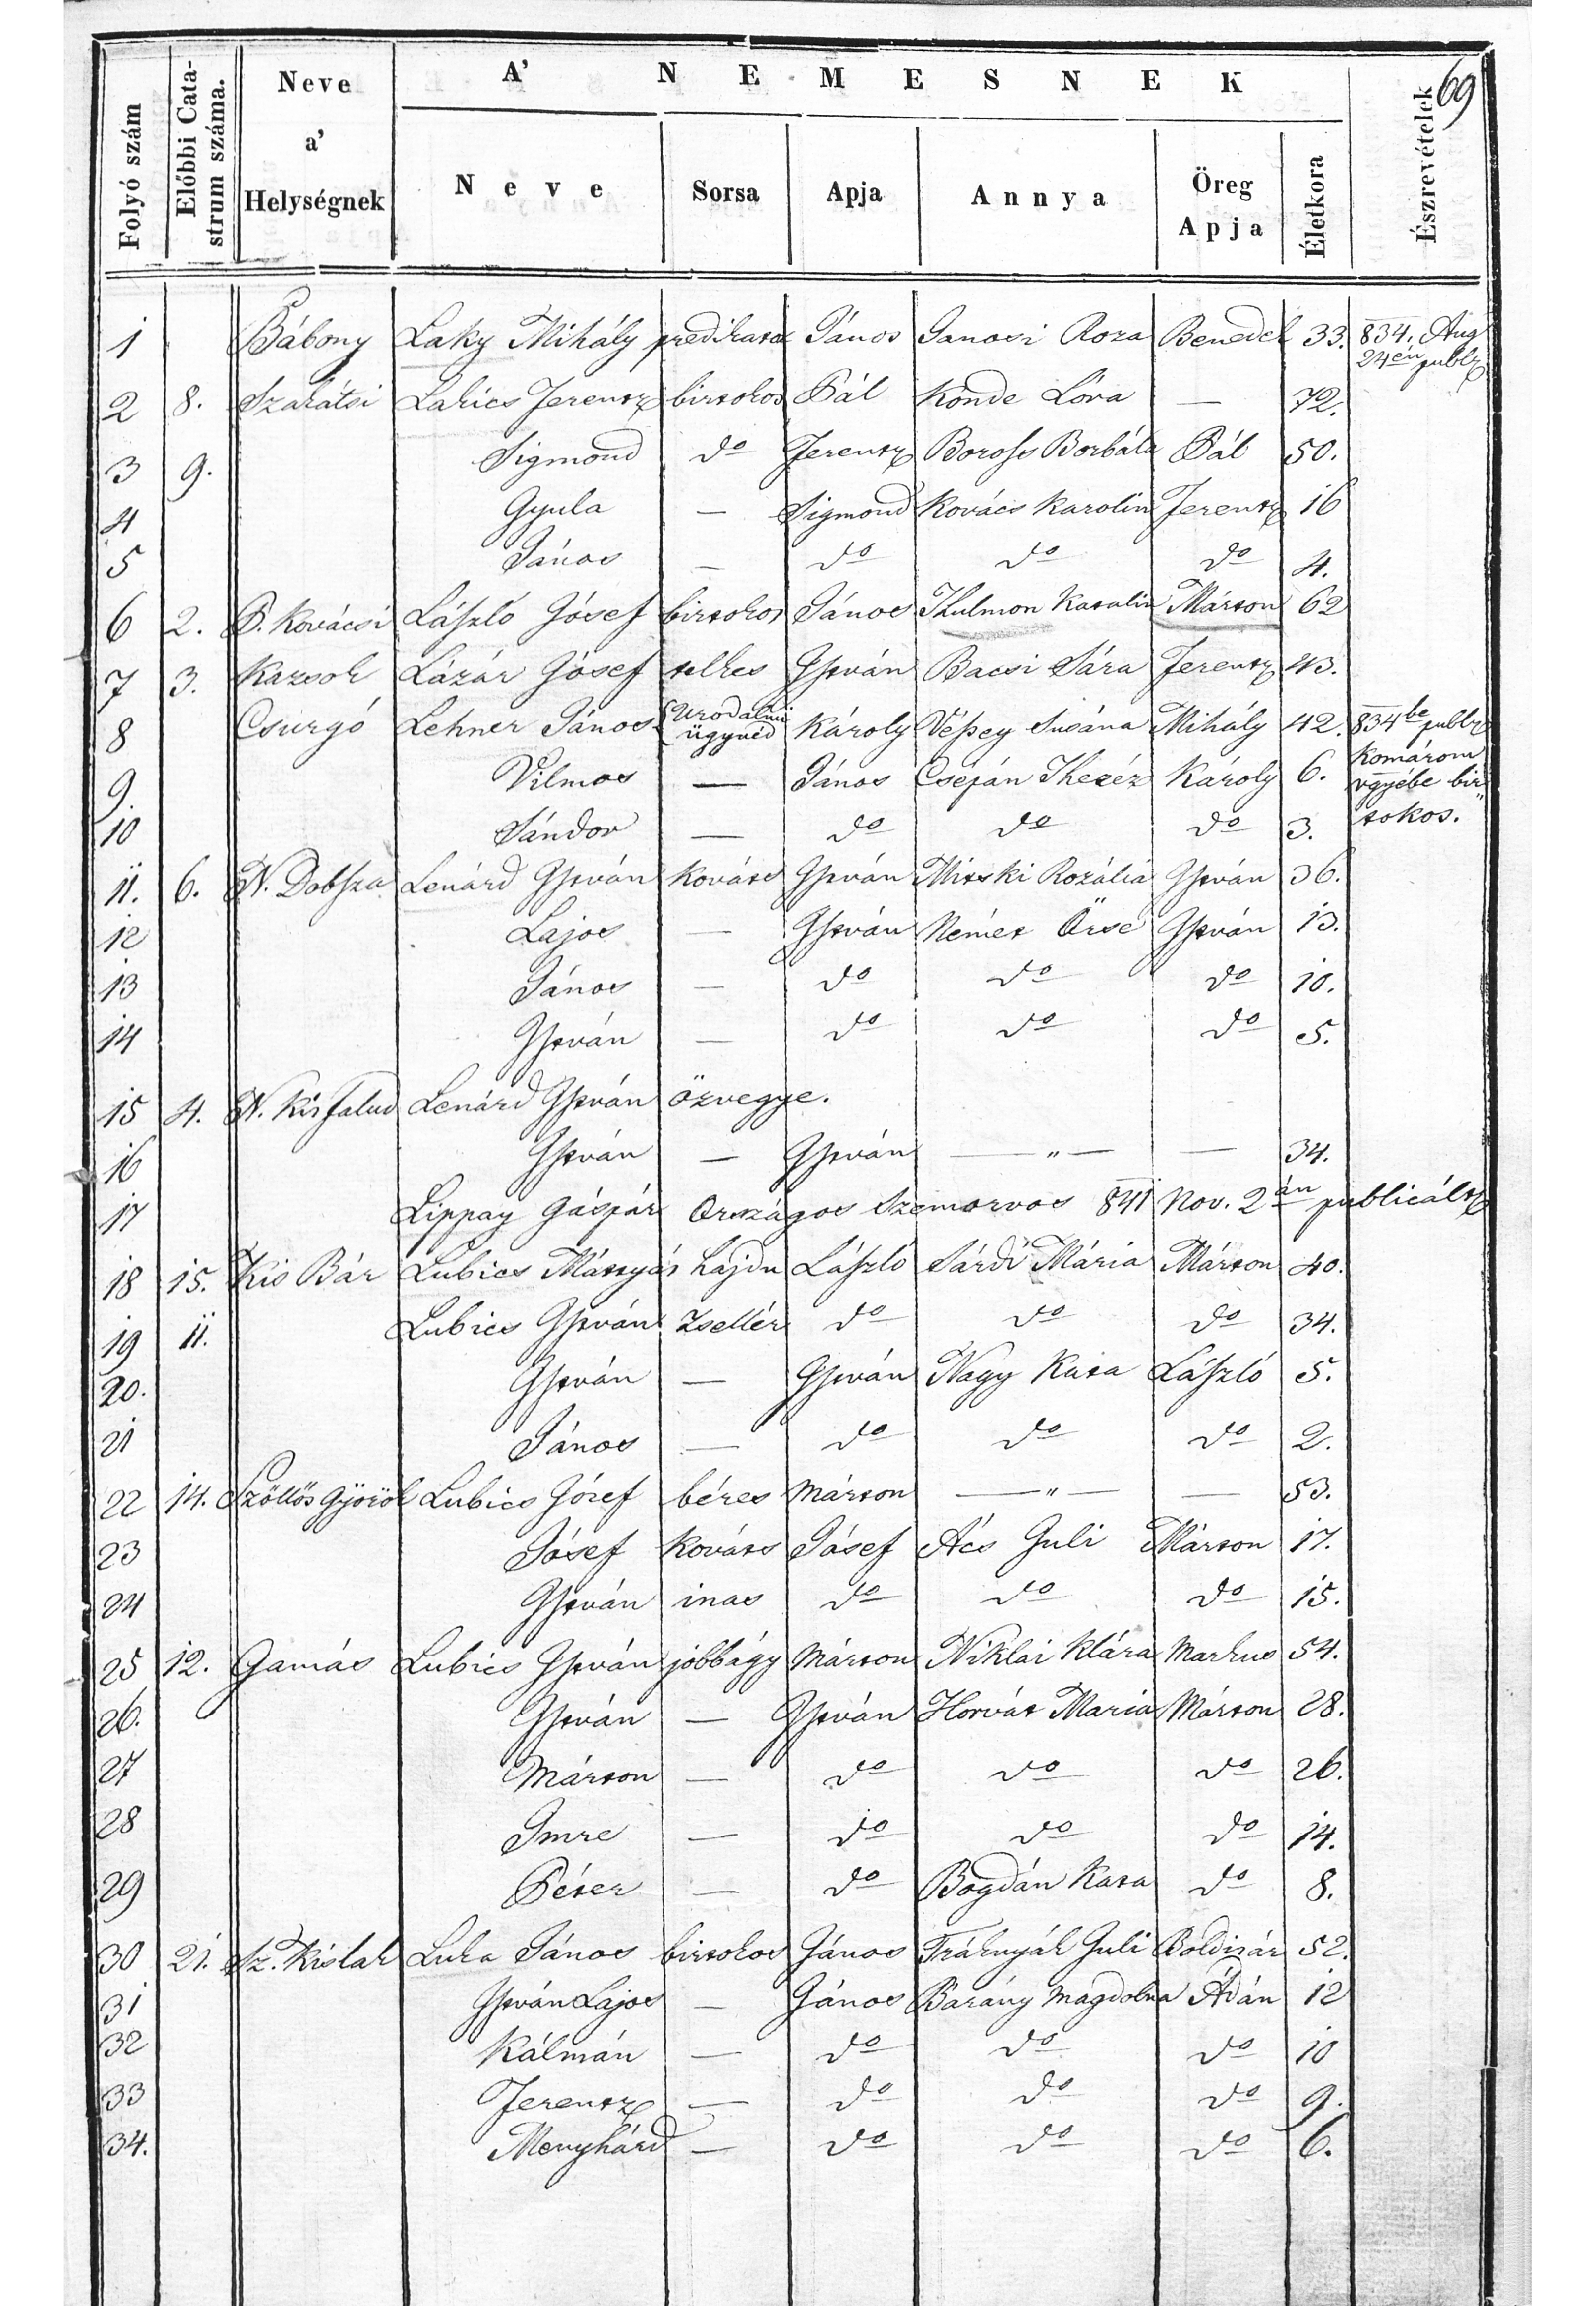 69
A' NEMESNEK
Folyó szám | Előbbi Cata-strum száma. | Neve a' Helységnek | Neve | Sorsa | Apja | Annya | Öreg Apja | Életkora | Észrevételek
1 Bábony Laky Mihály predikator János Janosi Roza Benedek 33. 834. Aug 24én publ.
2 8. Szakátsi Lakics Ferentz birtokos Pál Konde Lóra — 72.
3 9. Sigmond do Ferentz Boross Borbála Pál 50.
4 Gyula — Sigmond Kovács Karolin Ferentz 16
5 János — do do do 4.
6 2. P. Kovácsi László Jósef birtokos János Thulmon Katalin Márton 62
7 3. Kazsok Lázár Jósef telkes István Bacsi Sára Ferentz 43.
8 Csurgó Lehner János Urodalmi ügyvéd Károly Vépey Susána Mihály 42. 834be publ.
9. Vilmos — János Csépán Theréz Károly 6. Komárom vgyébe bir
10 Sándor — do do do 3. tokos.
11. 6. N. Dobsza Lenárd István Kováts István Mitski Rozália István 36.
12 Lajos — István Német Örse István 13.
13 János — do do do 10.
14 István — do do do 5.
15 4. N. Kisfalud Lenárd István özvegye.
16 István — István — " — — 34.
17 Lippay Gáspár Országos Szemorvos 841 Nov. 2án publicált
18 15. Kis Bár Lubics Mátyás hajdu László Sárdi Mária Márton 40.
19 11. Lubics István Zsellér do do do 34.
20. István — István Nagy Kata László 5.
21 János — do do do 2.
22 14. Szöllős Györök Lubics Józef béres Márton — " — — 53.
23 Jósef Kováts Jósef Ács Juli Márton 17.
24 István inas do do do 15.
25 12. Gamás Lubics István jobbágy Márton Niklai Klára Markus 54.
26. István — István Horvát Maria Márton 28.
27 Márton — do do do 26.
28 Imre — do do do 14.
29 Péter — do Bogdán Kata do 8.
30 21. Sz. Kislak Luka János birtokos János Tráknyák Juli Boldisár 52.
31 István Lajos — János Bárány Magdolna Ádán 12
32 Kálmán — do do do 10
33 Ferentz — do do do 9.
34. Menyhárd — do do do 6.